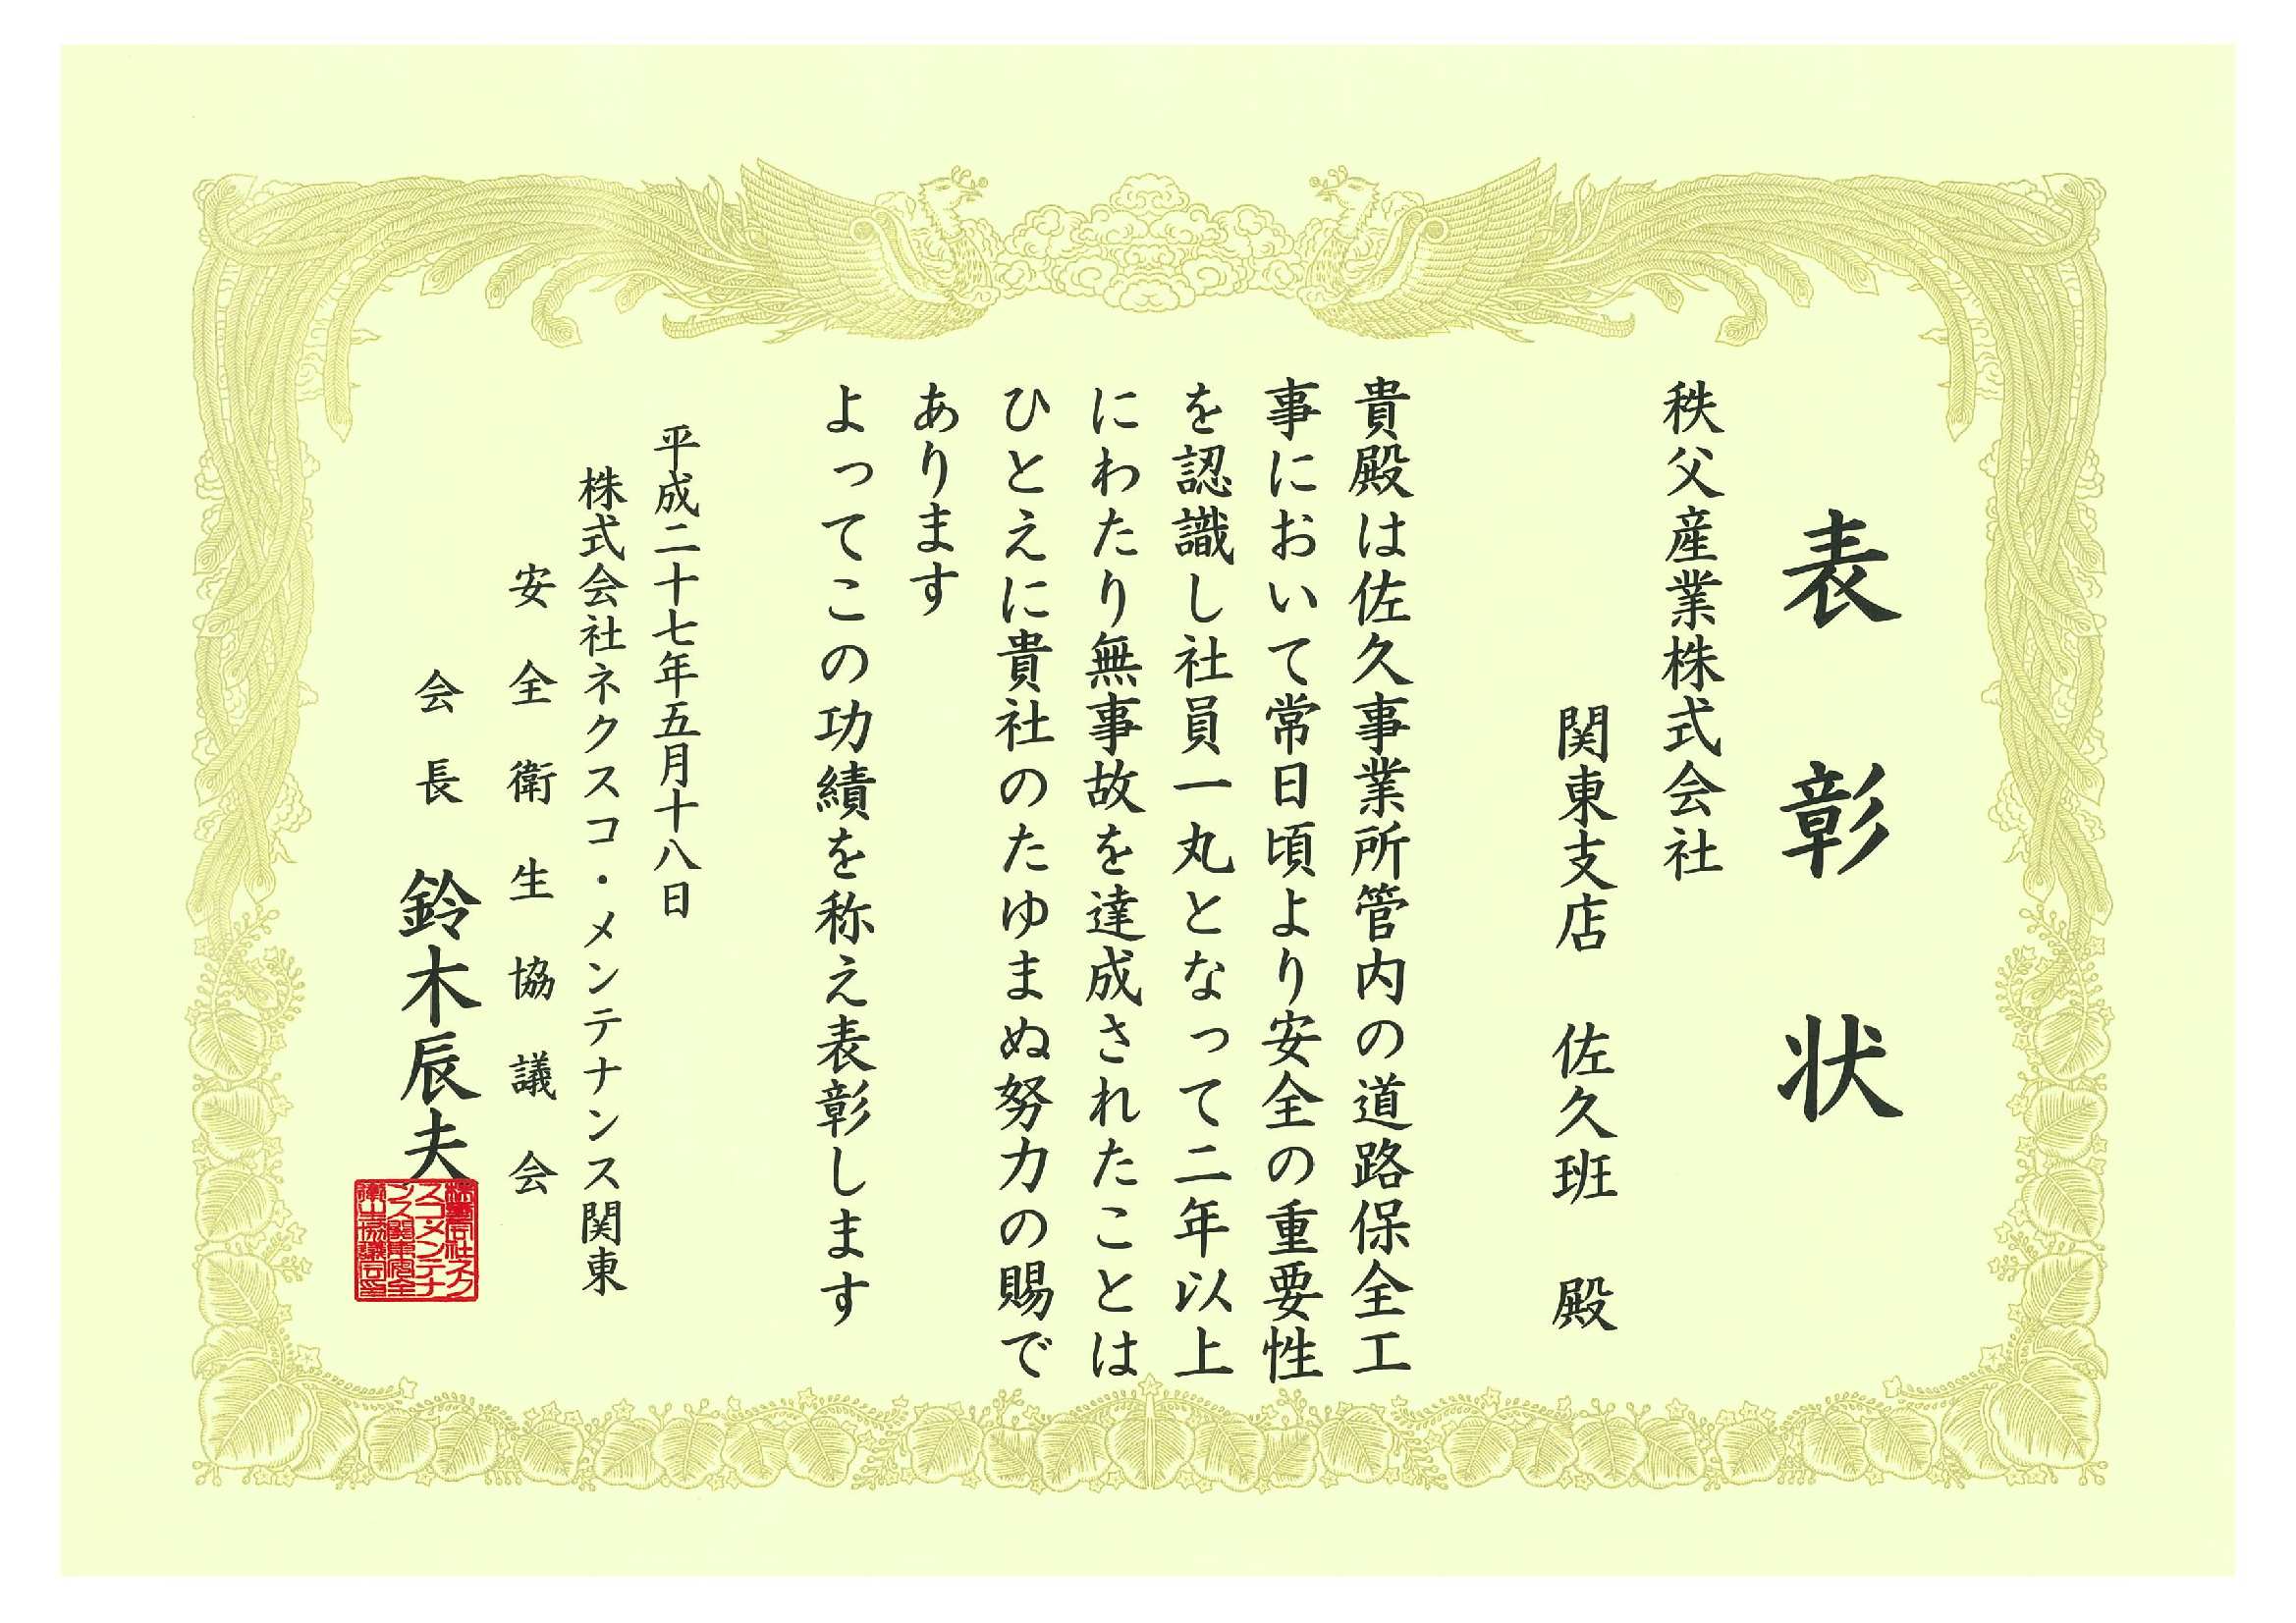 表彰状
秩父産業株式会社
関東支店 佐久班 殿
貴殿は佐久事業所管内の道路保全工
事において常日頃より安全の重要性
を認識し社員一丸となって二年以上
にわたり無事故を達成されたことは
ひとえに貴社のたゆまぬ努力の賜で
あります
よってこの功績を称え表彰します
平成二十七年五月十八日
株式会社ネクスコ・メンテナンス関東
安全衛生協議会
会長 鈴木辰夫